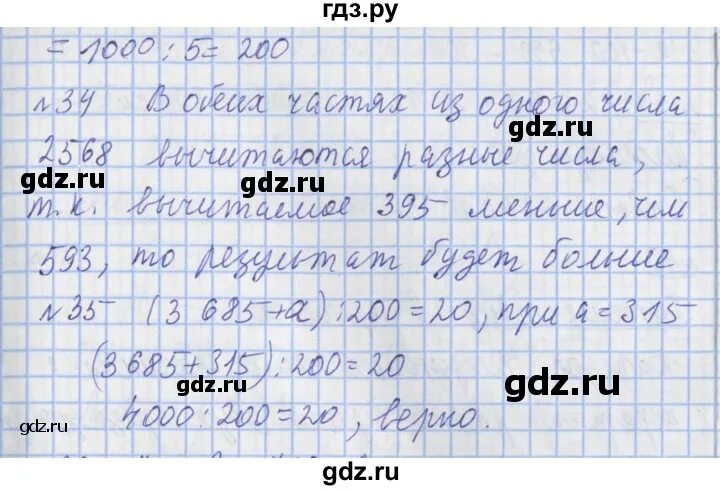 гдз.ру
= 1000 : 5 = 200
gdz.ru gdz.ru
№34 В обеих частях из одного числа
gdz.ru
2568 вычитаются разные числа,
gdz.ru gdz.ru
т.к. вычитаемое 395 меньше, чем
gdz.ru
593, то результат будет больше
gdz.ru gdz.ru
№35 (3 685+a) : 200 = 20, при a = 315
gdz.ru
(3685+315) : 200 = 20
gdz.ru gdz.ru
4000 : 200 = 20, верно.
gdz.ru gdz.ru
gdz.ru